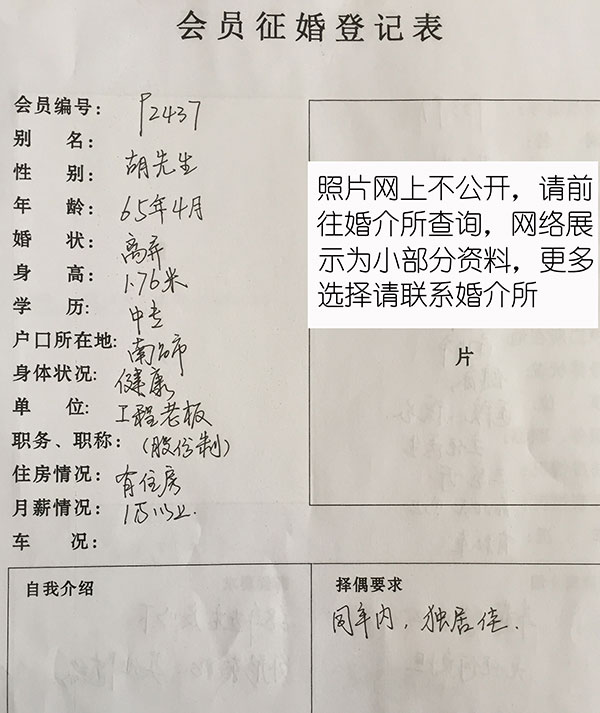 会员征婚登记表
会员编号: P2437
别 名:
性 别: 胡先生
年 龄: 65年4月
婚 状: 离异
身 高: 1.76米
学 历: 中专
户口所在地: 南宁市
身体状况: 健康
单 位: 工程老板
职务、职称: (股份制)
住房情况: 有住房
月薪情况: 1万以上.
车 况:
照片网上不公开，请前
往婚介所查询，网络展
示为小部分资料，更多
选择请联系婚介所
片
自我介绍
择偶要求
同年内，独居佳.